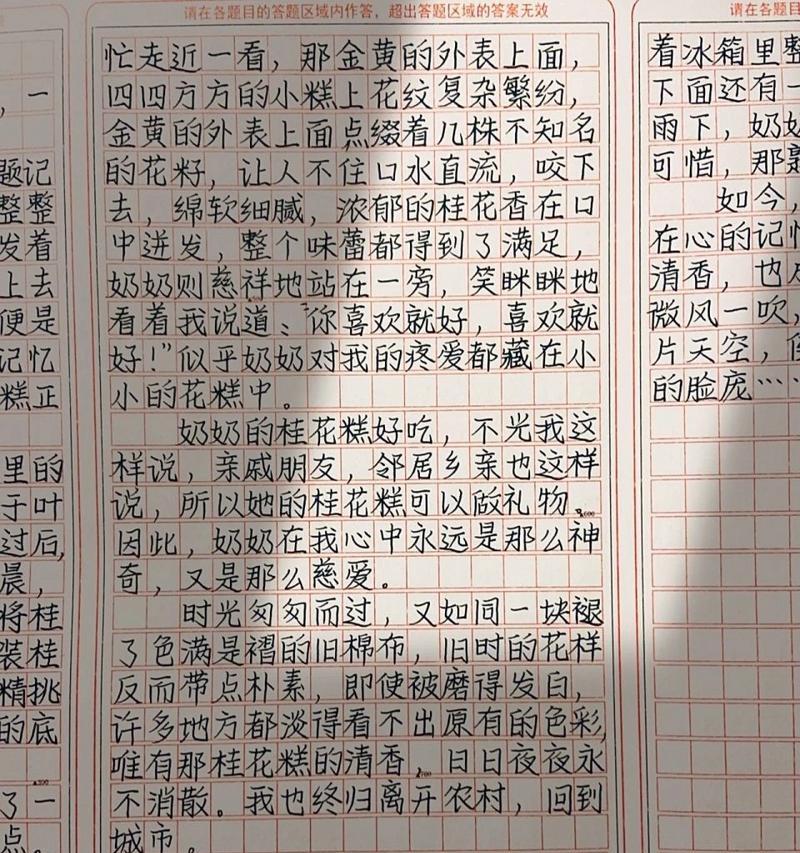 请在各题目的答题区域内作答，超出答题区域的答案无效
请在各题目
，一
题记
整整
发着
上去
便是
记忆
糕正
里的
于叶
过后,
晨，
将桂
装桂
精挑
的底
了一
点。
忙走近一看，那金黄的外表上面，
四四方方的小糕上花纹复杂繁纷，
金黄的外表上面点缀着几株不知名
的花籽，让人不住口水直流，咬下
去，绵软细腻，浓郁的桂花香在口
中迸发，整个味蕾都得到了满足，
奶奶则慈祥地站在一旁，笑眯眯地
看着我说道：“你喜欢就好，喜欢就
好！”似乎奶奶对我的疼爱都藏在小
小的花糕中。
奶奶的桂花糕好吃，不光我这
样说，亲戚朋友，邻居乡亲也这样
说，所以她的桂花糕可以做礼物。
因此，奶奶在我心中永远是那么神
奇，又是那么慈爱。
时光匆匆而过，又如同一块褪
了色满是褶的旧棉布，旧时的花样
反而带点朴素，即使被磨得发白，
许多地方都淡得看不出原有的色彩,
唯有那桂花糕的清香，日日夜夜永
不消散。我也终归离开农村，回到
城市。
着冰箱里整
下面还有一
雨下，奶奶
可惜，那
如今，
在心的记忆
清香，也
微风一吹，
片天空，
的脸庞……